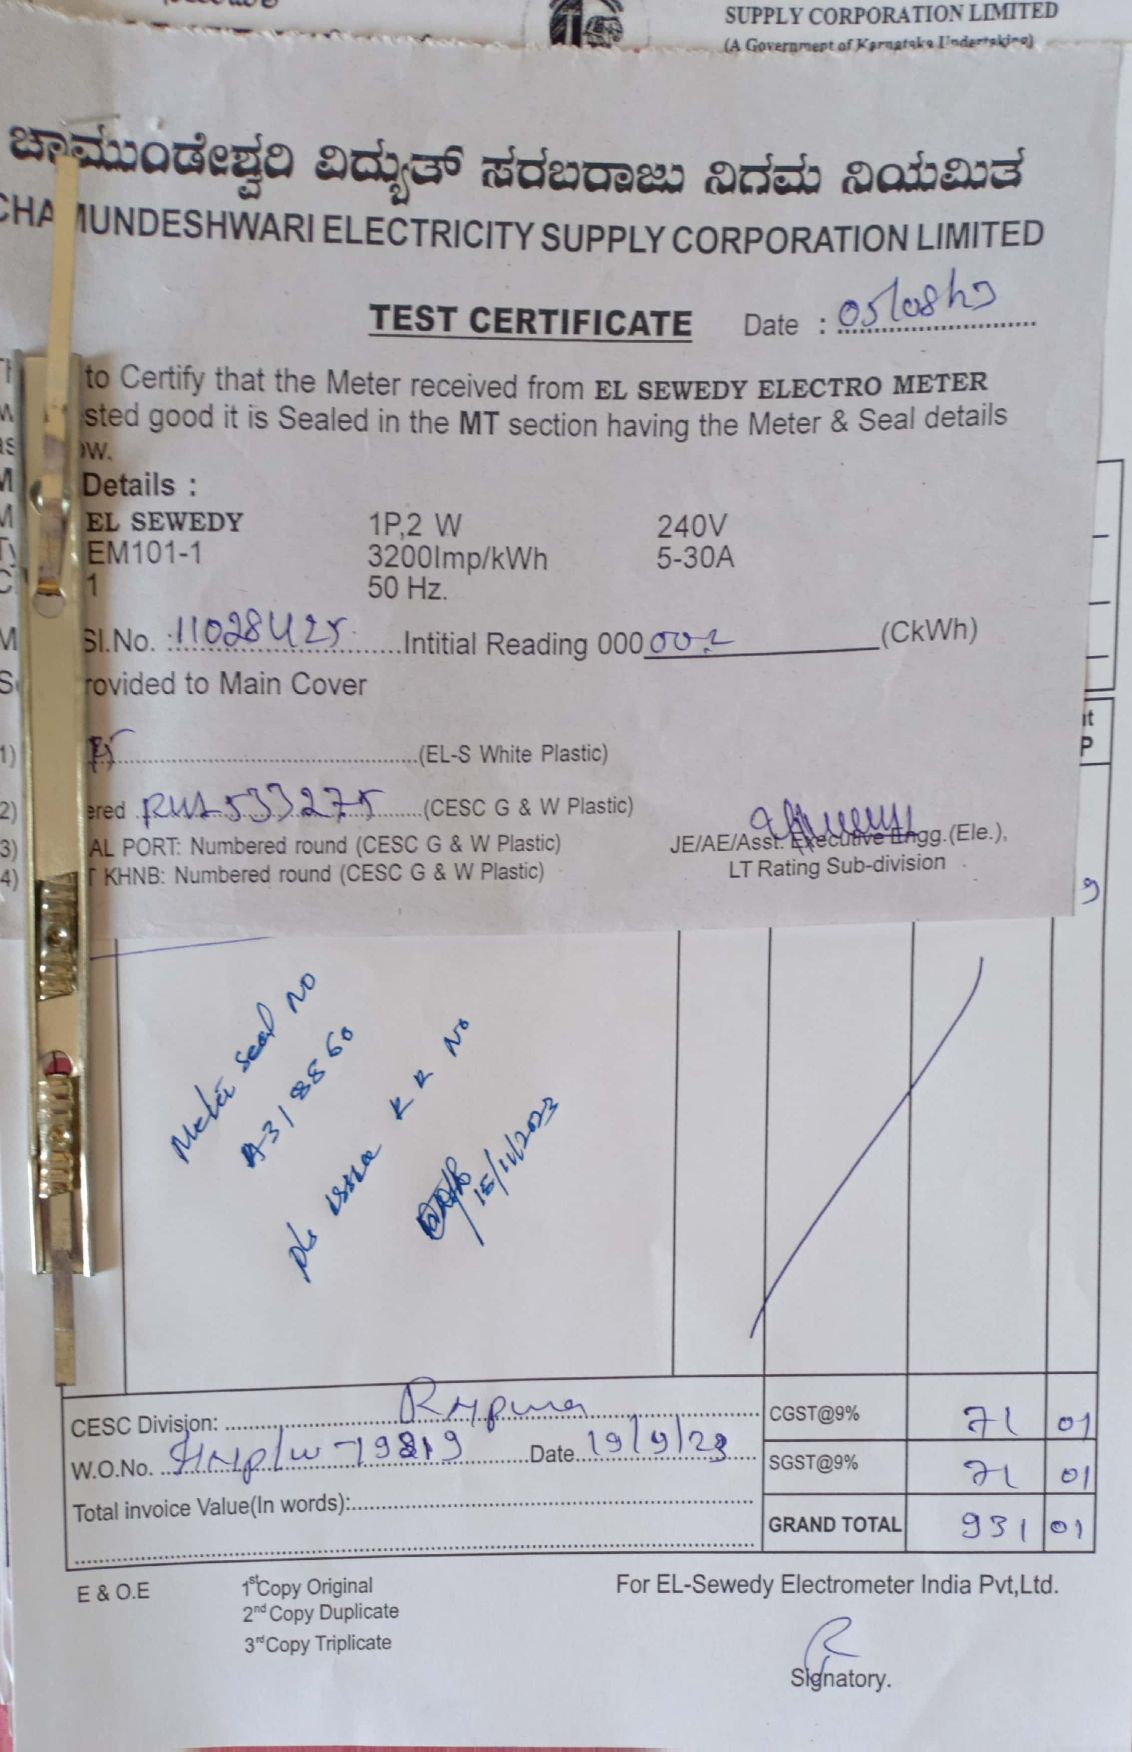 SUPPLY CORPORATION LIMITED
(A Government of Karnataka Undertaking)
ಚಾಮುಂಡೇಶ್ವರಿ ವಿದ್ಯುತ್ ಸರಬರಾಜು ನಿಗಮ ನಿಯಮಿತ
CHAMUNDESHWARI ELECTRICITY SUPPLY CORPORATION LIMITED
TEST CERTIFICATE Date : 05/08/23
to Certify that the Meter received from EL SEWEDY ELECTRO METER
sted good it is Sealed in the MT section having the Meter & Seal details
ow.
Details :
EL SEWEDY 1P,2 W 240V
EM101-1 3200Imp/kWh 5-30A
1 50 Hz.
Sl.No. :11028425 Intitial Reading 000 00.2 (CkWh)
rovided to Main Cover
1) (EL-S White Plastic)
2) ered 533275 (CESC G & W Plastic)
3) AL PORT: Numbered round (CESC G & W Plastic) JE/AE/Asst. Executive Engg.(Ele.),
4) T KHNB: Numbered round (CESC G & W Plastic) LT Rating Sub-division
Meter seal no
A318860
pls issue R R No
15/11/2023
CESC Division: CGST@9% 71 01
W.O.No. Date 19/9/23 SGST@9% 71 01
Total invoice Value(In words): GRAND TOTAL 931 01
E & O.E 1st Copy Original For EL-Sewedy Electrometer India Pvt,Ltd.
2nd Copy Duplicate
3rd Copy Triplicate
Signatory.